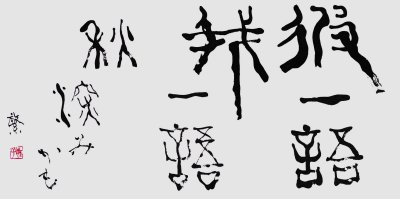 彼一語
我一語
秋
深み
かも